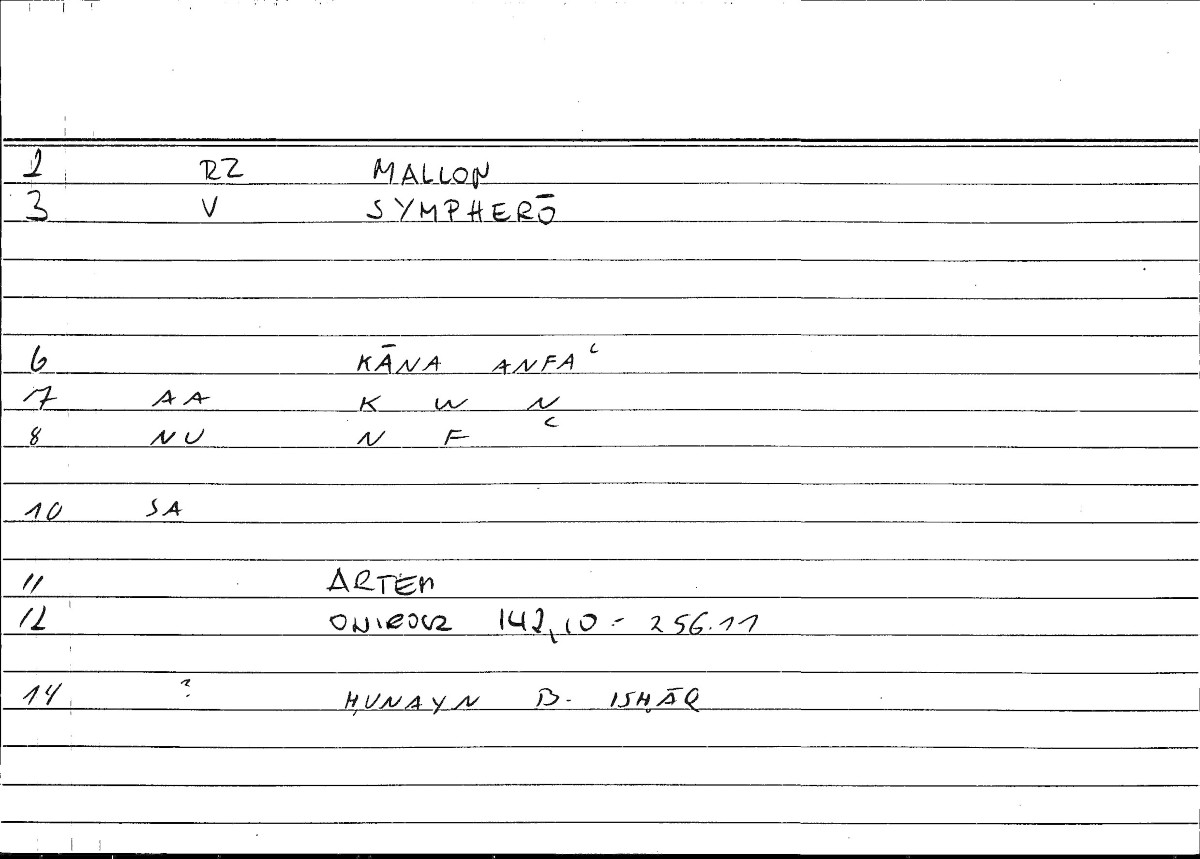 2 RZ MALLON
3 V SYMPHERŌ
6 KĀNA ANFAʿ
7 AA K W N
8 NU N F ʿ
10 SA
11 ARTEM
12 ONIROCR 142,10 = 256.11
14 ? ḤUNAYN B. ISḤĀQ